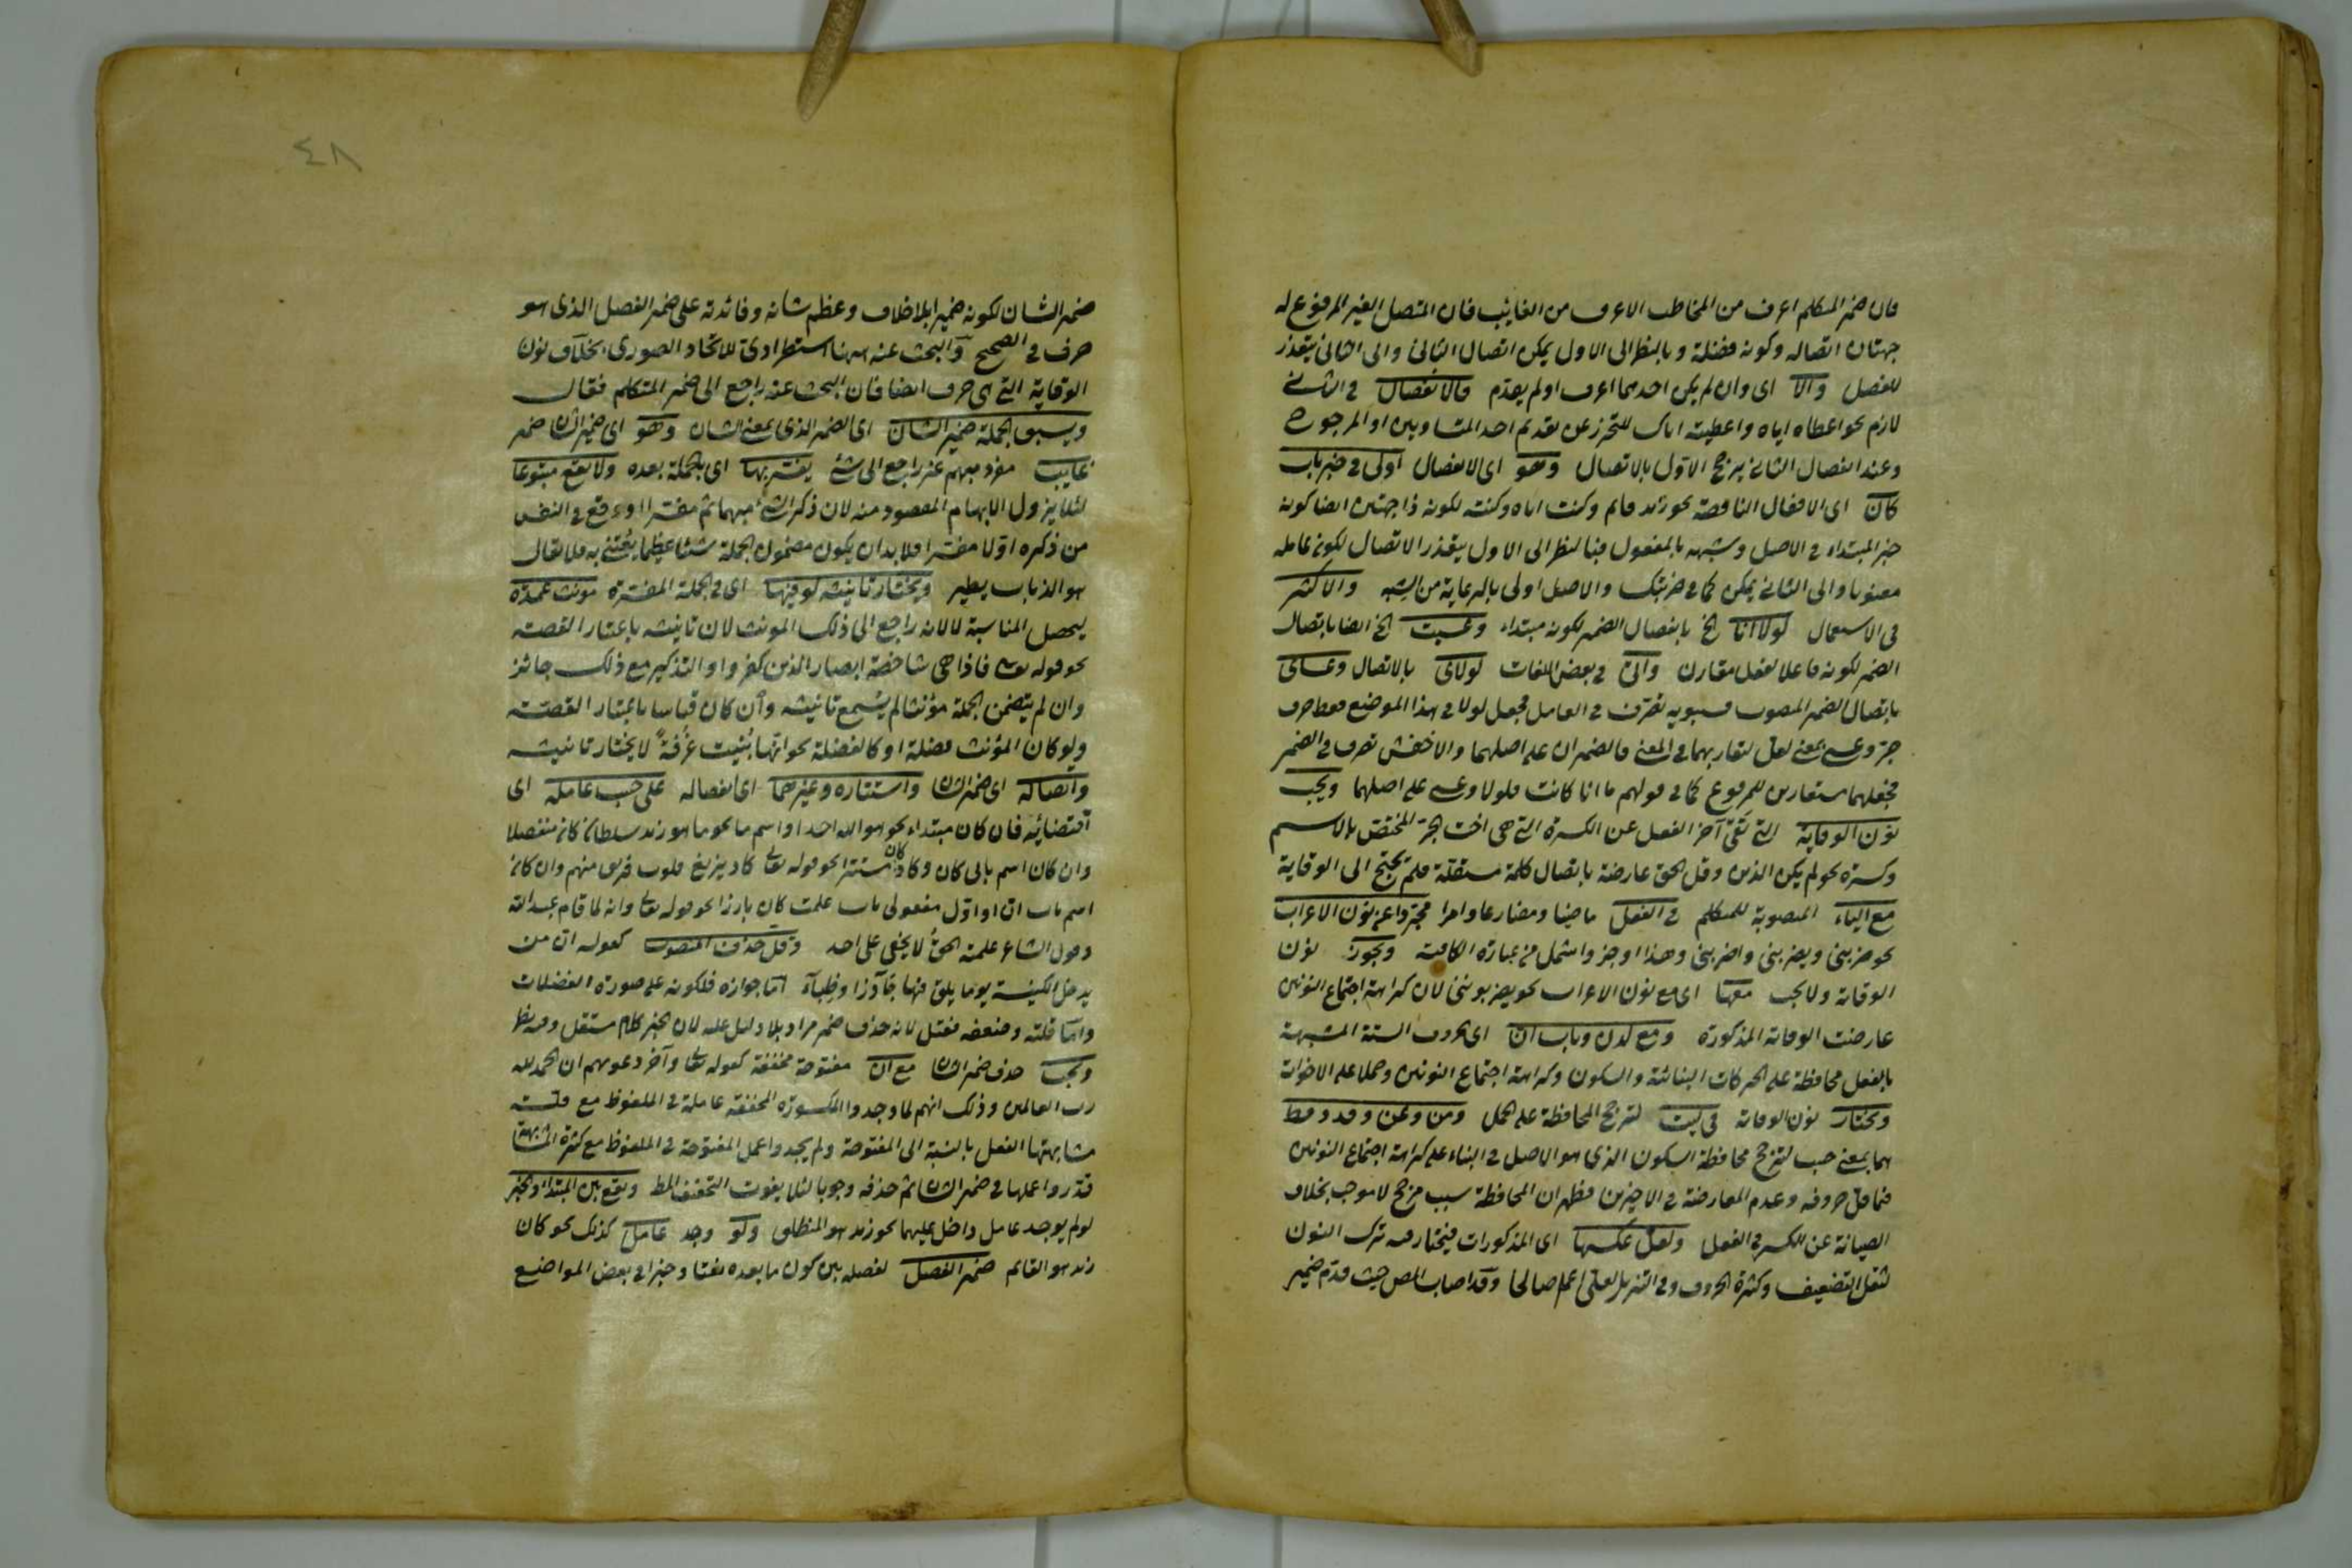 فان ضمير المتكلم اعرف من المخاطب الاعرف من الغائب فان المتصل الغير المرفوع له
جهتان اتصاله وكونه فضلة وبالنظر الى الاول يمكن اتصال الثانى والى الثانى يتعذر
للفصل والا اى وان لم يكن احدهما اعرف او لم يقدم فالانفصال فى الثانى
لازم نحو اعطاه اياه واعطيته اياك للتحرز عن تقديم احد المتساويين او المرجوح
وعند انفصال الثانى يرجح الاول بالاتصال وهو اى الانفصال اولى فى خبر باب
كان اى الافعال الناقصة نحو زيد قائم وكنت اياه وكنته لكونه ذا جهتين ايضا كونه
خبر المبتداء فى الاصل وشبهه بالمفعول فبالنظر الى الاول يتعذر الاتصال لكون عامله
معنويا والى الثانى يمكن كما فى ضربتك والاصل اولى بالرعاية من الشبه والاكثر
فى الاستعمال لولا انا الخ بانفصال الضمير لكونه مبتداء وعسيت الخ ايضا باتصال
الضمير لكونه فاعلا لفعل مقارن واتى فى بعض اللغات لولاى بالاتصال وعساى
باتصال الضمير المنصوب فسيبويه تصرف فى العامل فجعل لولا فى هذا الموضع فقط حرف
جر وعسى بمعنى لعل لتقاربهما فى المعنى فالضميران على اصلهما والاخفش تصرف فى الضمير
فجعلهما مستعارين للمرفوع كما فى قولهم ما انا كانت فلولا وعسى على اصلهما ويجب
نون الوقاية التى تقى آخر الفعل عن الكسرة التى هى اخت الجر المختص بالاسم
وكسرة نحو لم يكن الذين وقل الحق عارضة باتصال كلمة مستقلة فلم يحتج الى الوقاية
مع الياء المنصوبة للمتكلم فى الفعل ماضيا ومضارعا وامرا مجردا عن نون الاعراب
نحو ضربنى ويضربنى واضربنى وهذا اوجز واشمل من عبارة الكافية ويجوز نون
الوقاية ولا يجب معها اى مع نون الاعراب نحو يضربوننى لان كراهة اجتماع النونين
عارضت الوقاية المذكورة ومع لدن وباب ان اى الحروف الستة المشبهة
بالفعل محافظة على الحركات البنائية والسكون وكراهة اجتماع النونين وحملا على الاخوات
ويختار نون الوقاية فى ليت لترجح المحافظة على الحمل ومن وعن وقد وقط
هما بمعنى حسب لترجح محافظة السكون الذى هو الاصل فى البناء على كراهة اجتماع النونين
فيما قل حروفه وعدم المعارضة فى الاخيرين فظهر ان المحافظة سبب مرجح لا موجب بخلاف
الصيانة عن الكسر فى الفعل ولعل عكسها اى المذكورات فيختار فيه ترك النون
لثقل التضعيف وكثرة الحروف وفى التنزيل لعلى اعمل صالحا وقد اصاب المص حيث قدم ضمير
٤٨
ضمير الشان لكونه ضميرا بلا خلاف وعظم شانه وفائدته على ضمير الفصل الذى هو
حرف فى الصحيح والبحث عنه ههنا استطرادى للاتحاد الصورى بخلاف نون
الوقاية التى هى حرف ايضا فان البحث عنه راجع الى ضمير المتكلم فقال
ويسبق الجملة ضمير الشان اى الضمير الذى بمعنى الشان وهو اى ضمير الشان ضمير
غايب مفرد مبهم غير راجع الى شئ يفسر بها اى بالجملة بعده ولا يقع متبوعا
لئلا يزول الابهام المقصود منه لان ذكر الشئ مبهما ثم مفسرا اوقع فى النفس
من ذكره اولا مفسرا فلا بد ان يكون مضمون الجملة شيئا عظيما يعتنى به فلا يقال
هو الذباب يطير ويختار تانيثه لو فيها اى فى الجملة المفسرة مونث عمدة
ليحصل المناسبة لا لانه راجع الى ذلك المونث لان تانيثه باعتبار القصة
نحو قوله تعالى فاذا هى شاخصة ابصار الذين كفروا والتذكير مع ذلك جائز
وان لم يتضمن الجملة مؤنثا لم يسمع تانيثه وان كان قياسا باعتبار القصة
ولو كان المؤنث فضلة او كالفضلة نحو انها بنيت غرفة لا يختار تانيثه
واتصاله اى ضمير الشان واستتاره وغيرهما اى انفصاله على حسب عامله اى
اقتضائه فان كان مبتداء نحو هو الله احد او اسم ما نحو ما هو زيد سلطان كان منفصلا
وان كان اسم بابى كان وكاد كان مستترا نحو قوله تعالى كاد يزيغ قلوب فريق منهم وان كان
اسم باب ان او اول مفعولى باب علمت كان بارزا نحو قوله تعالى وانه لما قام عبد الله
وقول الشاعر علمته الحق لا يخفى على احد وقل حذف المنصوب كقوله ان من
يدخل الكنيسة يوما يلق فيها جآذرا وظباء اما جوازه فلكونه على صورة الفضلات
واما قلته وضعفه فقيل لانه حذف ضمير مراد بلا دليل عليه لان الخبر كلام مستقل وفيه نظر
ويجب حذف ضمير الشان مع ان مفتوحة مخففة كقوله تعالى وآخر دعويهم ان الحمد لله
رب العالمين وذلك انهم لما وجدوا المكسورة المخففة عاملة فى الملفوظ مع قلة
مشابهتها الفعل بالنسبة الى المفتوحة ولم يجدوا عمل المفتوحة فى الملفوظ مع كثرة المشابهة
قدروا عملها فى ضمير الشان ثم حذفه وجوبا لئلا يفوت التخفيف المط ويقع بين المبتداء والخبر
لو لم يوجد عامل داخل عليهما نحو زيد هو المنطلق ولو وجد عامل كذلك نحو كان
زيد هو القائم ضمير الفصل لفصله بين كون ما بعده نعتا وخبرا فى بعض المواضع